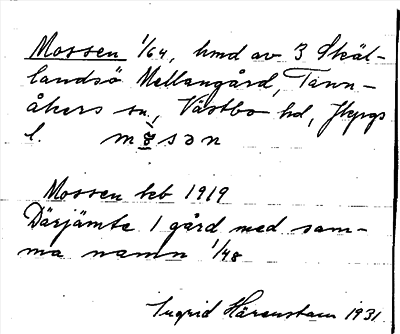 Mossen 1/64, hmd av 3 Skäl-
landsö Mellangård, Tann-
åkers sn, Västbo hd, Jkpgs
l. mɔ̀sən
Mossen keb 1919
Därjämte 1 gård med sam-
ma namn 1/48
Ingrid Härenstam 1931